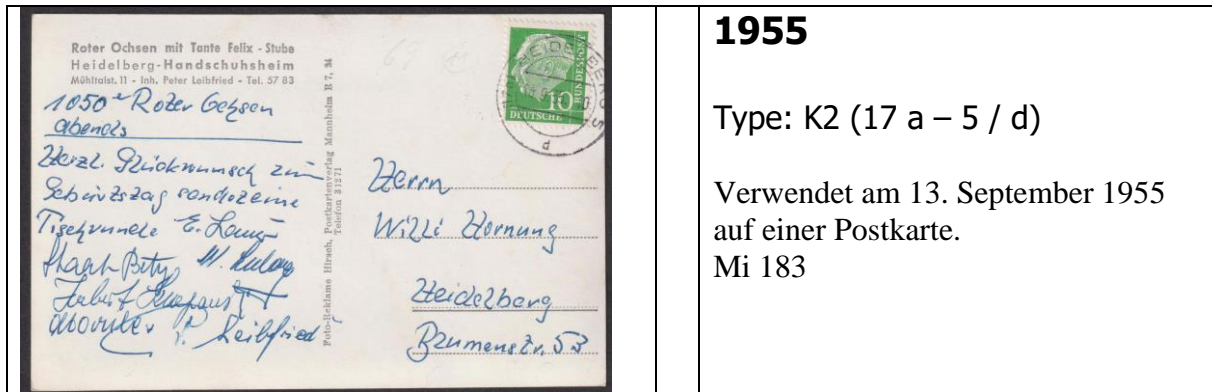 Roter Ochsen mit Tante Felix - Stube
Heidelberg-Handschuhsheim
Mühltalst. 11 - Inh. Peter Leibfried - Tel. 57 83
Roter
abends
Herzl. Glückwunsch zum
Geburtstag
E.
Leibfried
Foto-Reklame Hirsch, Postkartenverlag Mannheim B 7, 14
Telefon 31271
HEIDELBERG
10
DEUTSCHE
BUNDESPOST
d
Herrn
Willi Hornung
Heidelberg
Blumenstr. 53
1955
Type: K2 (17 a – 5 / d)
Verwendet am 13. September 1955
auf einer Postkarte.
Mi 183